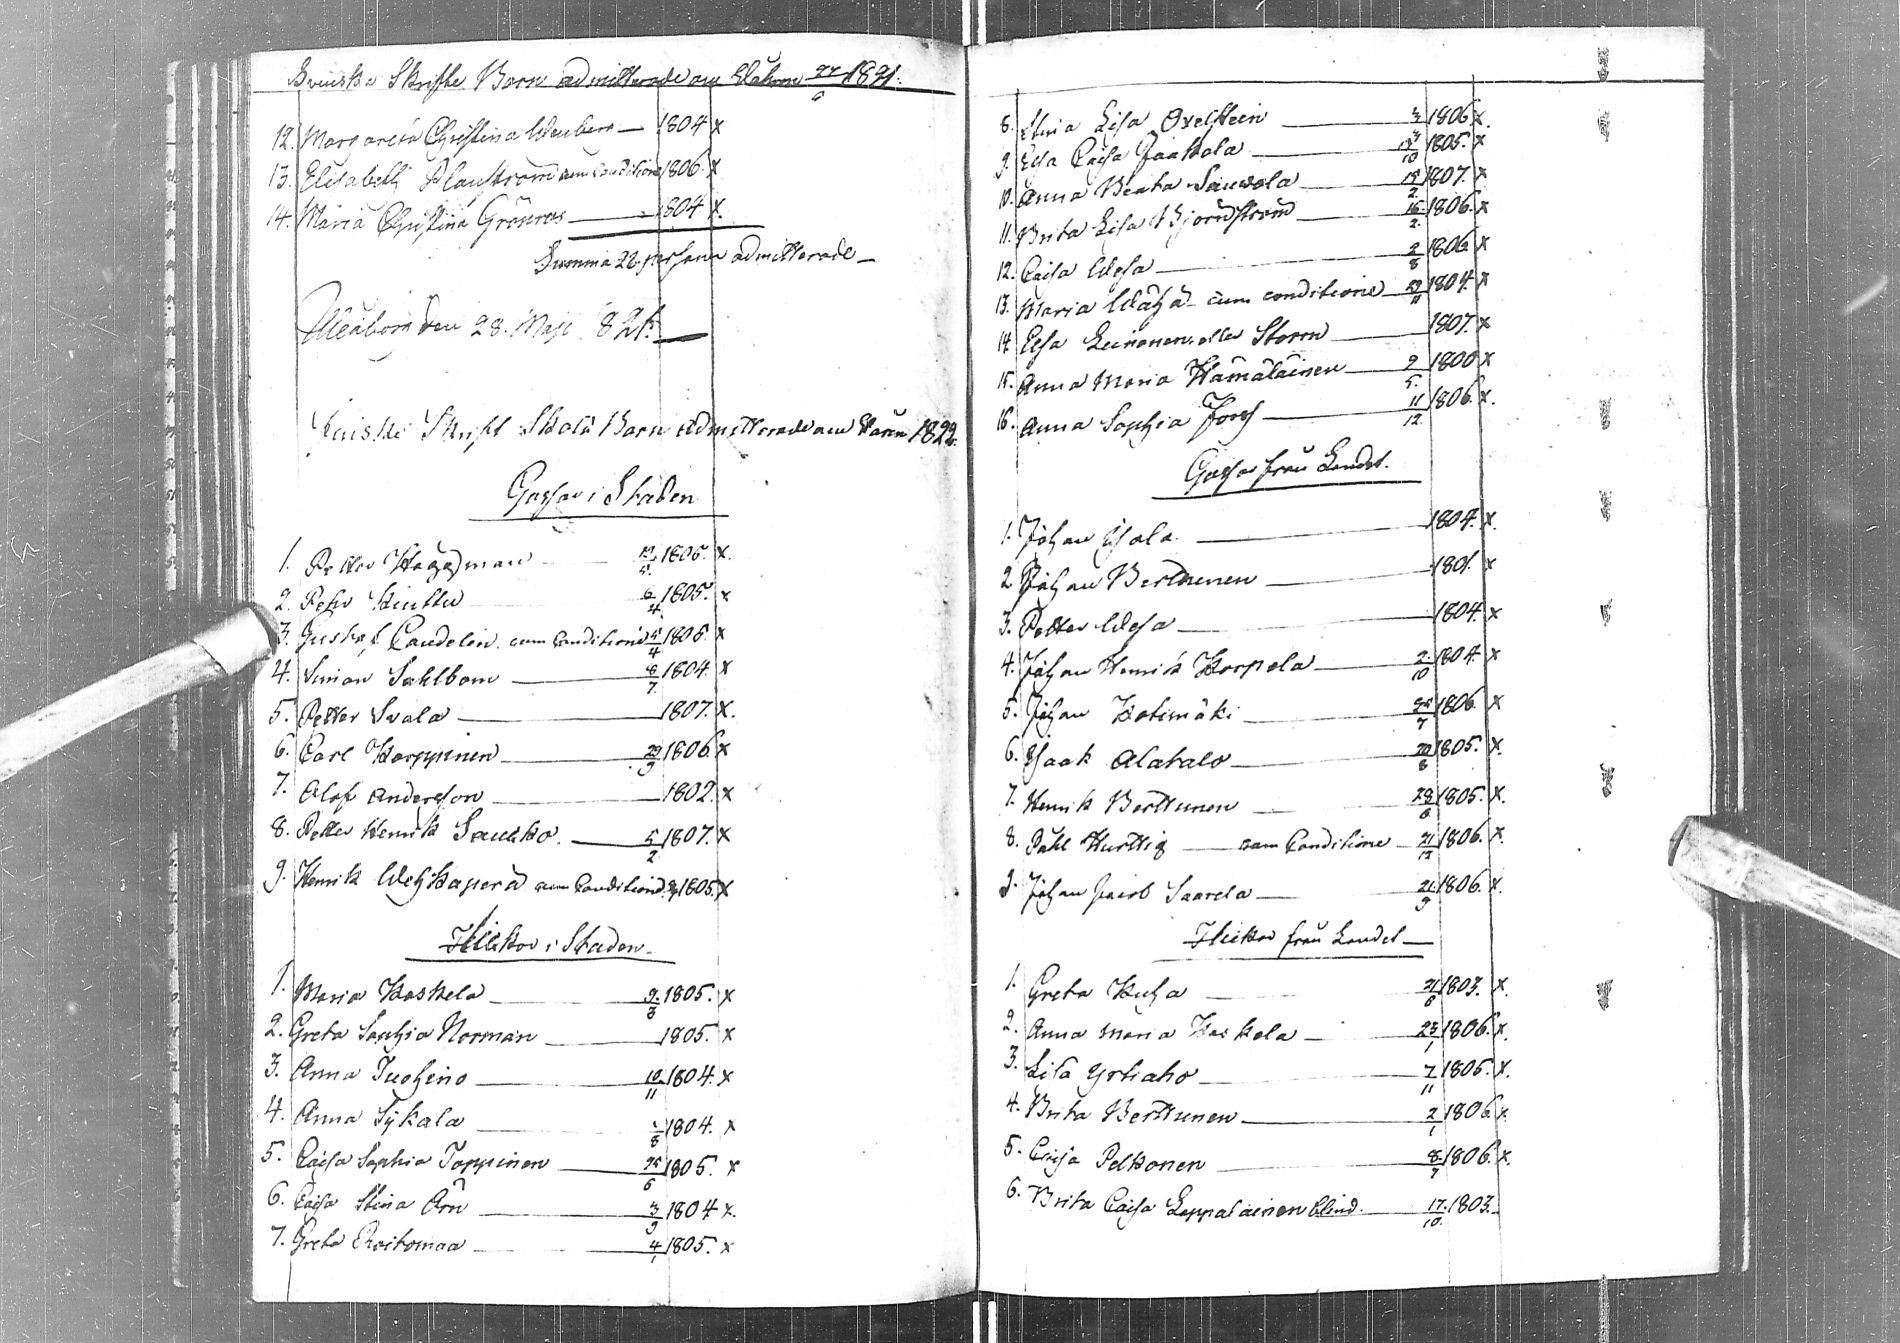 Svenska Skrifte Barn admitterade om Våhren 27/6 1821.
12. Margareta Christina Wenberg — 1804 x
13. Elisabeth Planstrom cum conditione 1806. x
14. Maria Christina Grönroos — 1804 x.
Summa 22 personer admitterade —
Uleåborg den 28. Maji 1821. —
Finska Skrift Skola Barn admitterade om Våren 1822.
Gossar i Staden
1. Petter Haggman 12/5. 1805. x.
2. Pehr Kinttu 6/4 1805. x
3. Gustaf Caudelin cum Conditione 5/4 1806. x
4. Simon Sahlbom — 8/7 1804. x
5. Petter Svala — 1807. x.
6. Carl Karppinen — 29/9 1806. x
7. Olof Anderson — 1802. x
8. Petter Henrik Saukko. — 5/2 1807. x
9. Henrik Wehkaperä cum Conditione 1805. x
Flickor i Staden.
1. Maria Koskela — 9/8 1805. x
2. Greta Sophia Norman — 1805. x
3. Anna Tuohino — 10/11 1804. x
4. Anna Sykala 1/8 1804. x
5. Caisa Sophia Toppinen — 25/6 1805. x
6. Caisa Stina Örn — 3/9 1804 x.
7. Greta Roitomaa — 4/1 1805. x
8. Stina Lisa Oxelstein — 1806. x.
9. Elsa Caisa Jaakola — 13/10 1805. x
10. Anna Beata Sauvola — 18/2 1807. x
11. Brita Lisa Bjornstrom — 16/2. 1806. x
12. Caisa Wesa — 2/8 1806 x
13. Maria Wähä cum conditione — 29/11 1804. x
14 Elsa Leinonen eller Storm — 1807. x
15. Anna Maria Hämäläinen — 9/5. 1800 x
16. Anna Sophia Forss — 11/12 1806. x.
Gossar från Landet.
1. Johan Ojala — 1804. x.
2. Johan Berttunen — 1801. x
3. Petter Wesa — 1804. x
4. Johan Henrik Korpela — 2/10 1804. x
5. Johan Kotimäki — 25/7 1806. x
6. Isaak Alatalo — 20/8 1805. x.
7. Henrik Berttunen — 28/6 1805. x.
8. Påhl Hurttig — cum Conditione — 21/12 1806. x.
9. Johan Jacob Saarela — 21/9 1806. x.
Flickor från Landet —
1. Greta Kuha — 21/6 1803. x.
2. Anna Maria Koskela — 23/1 1806. x.
3. Lisa Yrtiaho — 7/11 1805. x.
4. Brita Berttunen — 2/1 1806 x.
5. Caisa Pelkonen — 8/7 1806. x.
6. Brita Caisa Leppalainen blind. — 17/10. 1803.